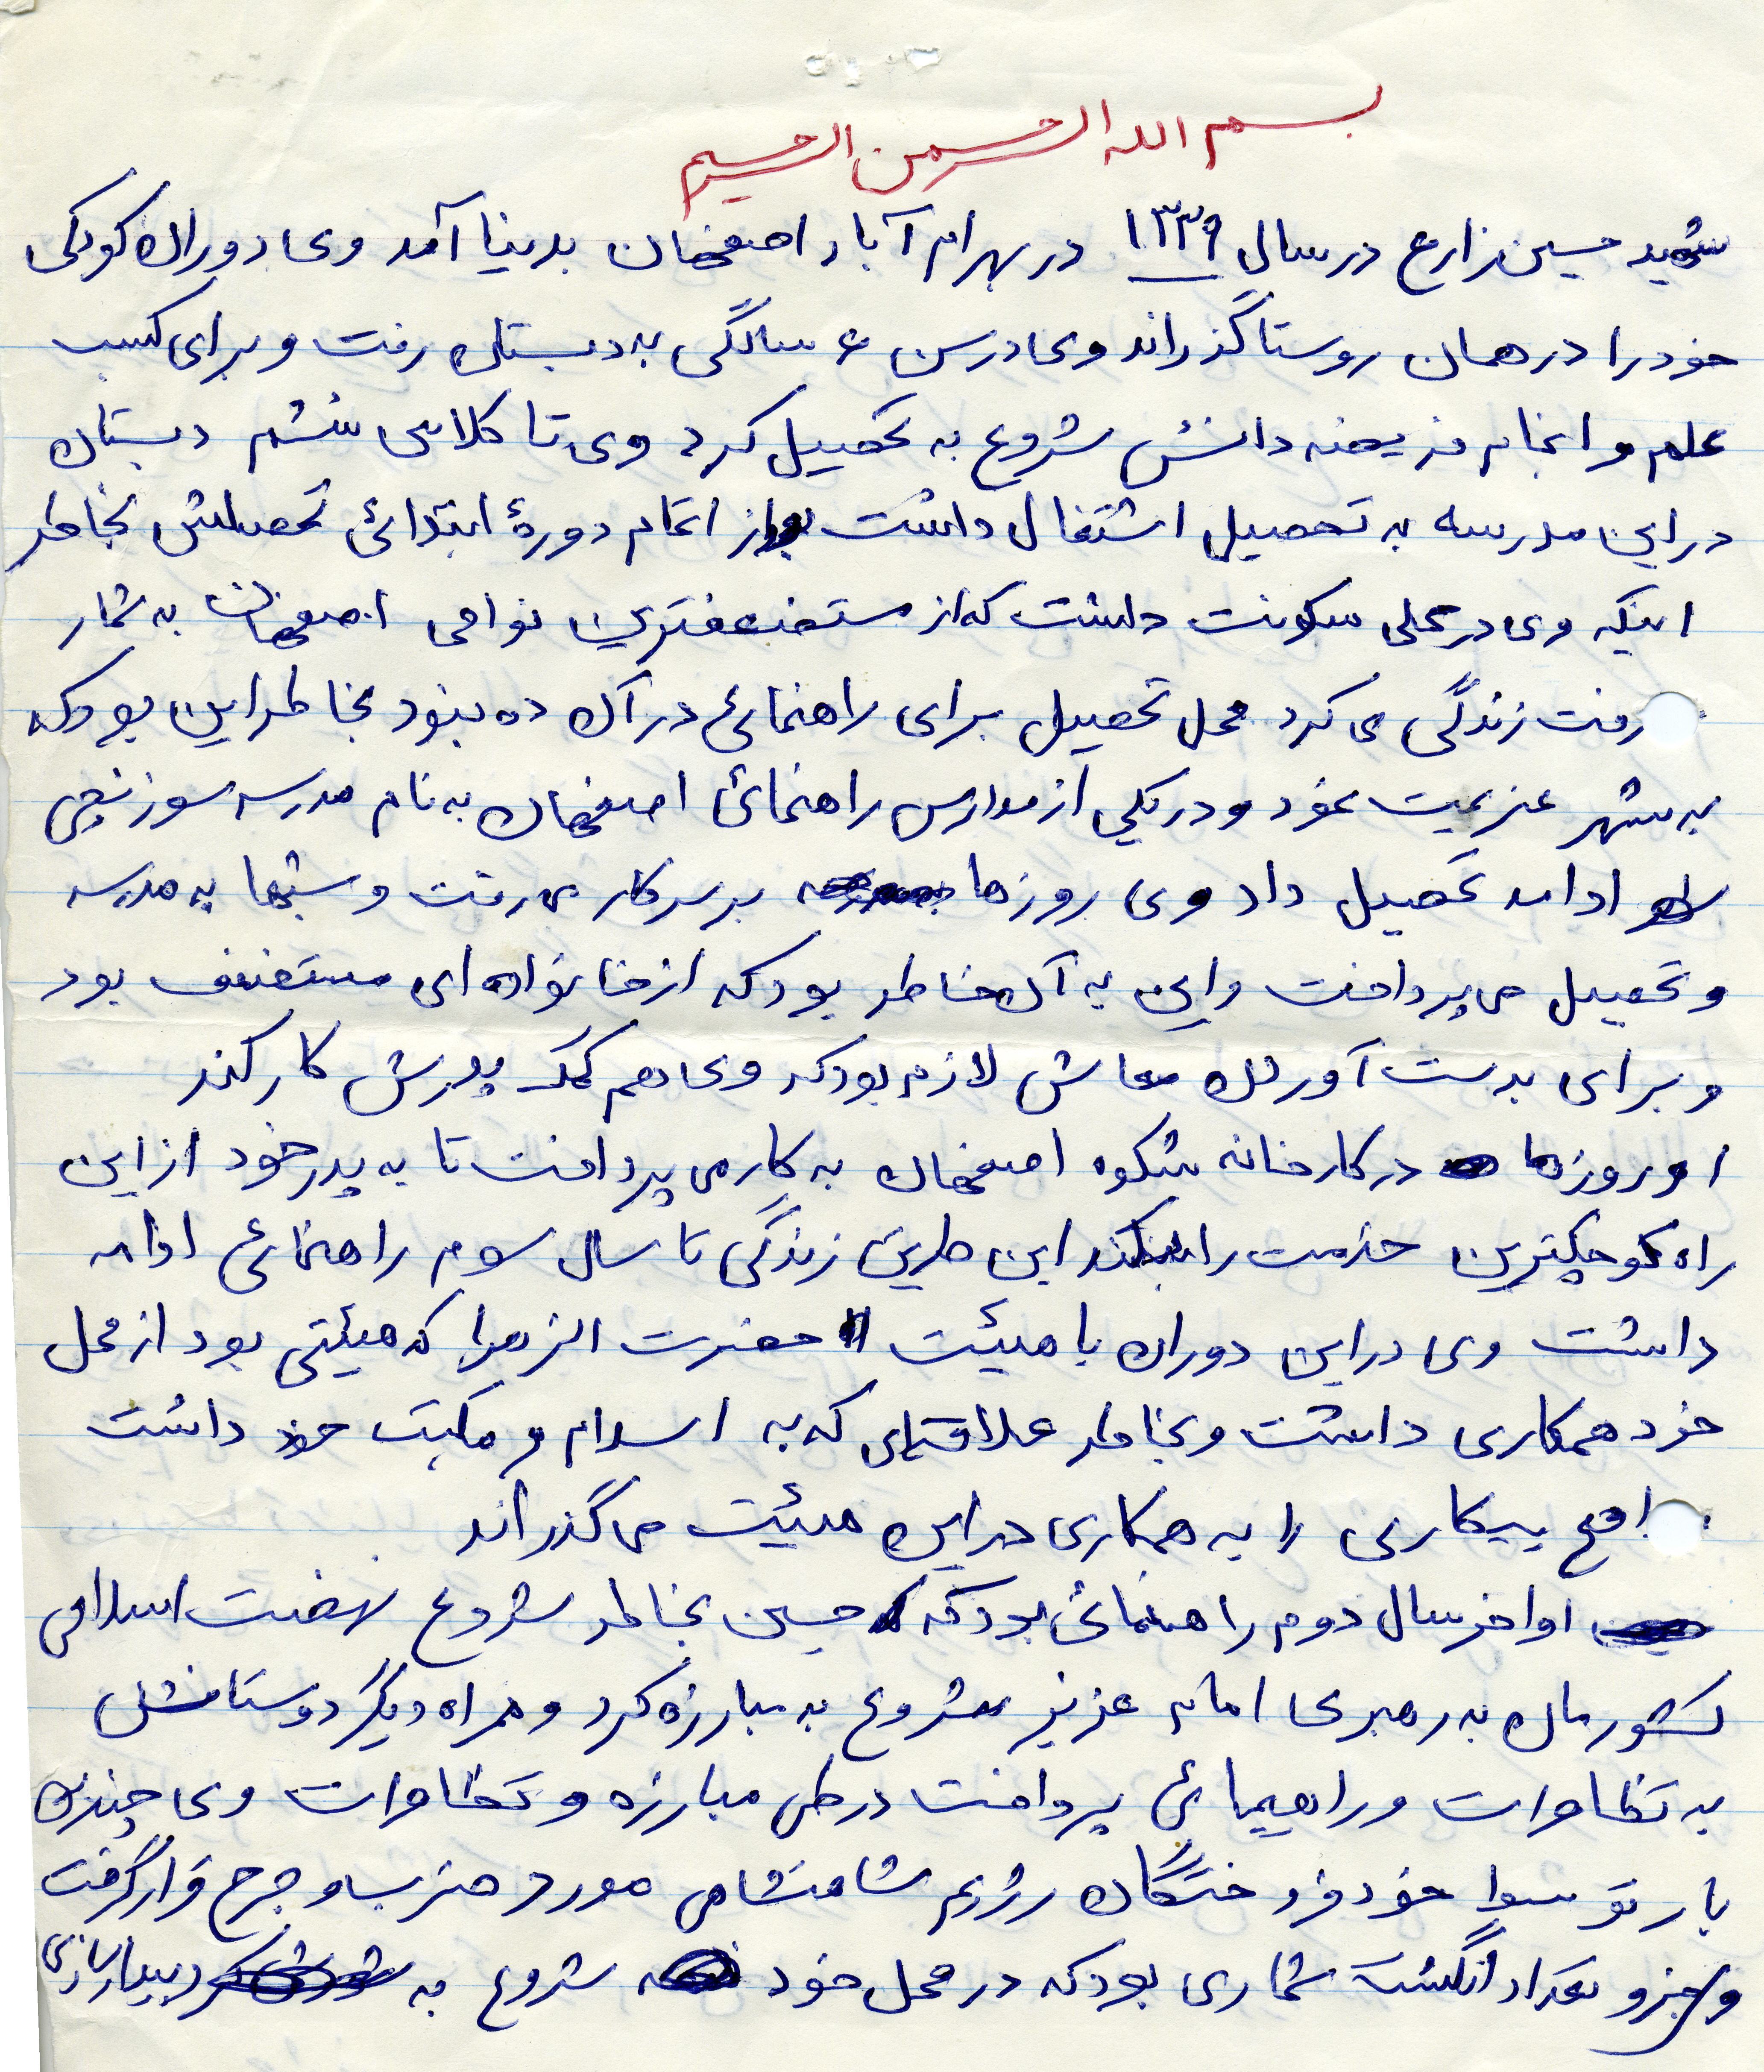 بسم الله الرحمن الرحیم
شهید حسین زارع در سال ۱۳۳۹ در بهرام آباد اصفهان بدنیا آمد وی دوران کودکی
خود را در همان روستا گذراند وی در سن ۶ سالگی به دبستان رفت و برای کسب
علم و انجام فریضه دانش شروع به تحصیل کرد وی تا کلاس ششم دبستان
در این مدرسه به تحصیل اشتغال داشت بعد از اتمام دورهٔ ابتدائی تحصیلش بخاطر
اینکه وی در محلی سکونت داشت که از مستضعفترین نواحی اصفهان به شمار
رفت زندگی می کرد محل تحصیل برای راهنمائی در آن ده نبود بخاطر این بود که
به شهر عزیمت نمود و در یکی از مدارس راهنمائی اصفهان به نام مدرسه سوزنچی
ادامه تحصیل داد وی روزها بر سر کار می رفت و شبها به مدرسه
و تحصیل می پرداخت و این به آن خاطر بود که از خانواده ای مستضعف بود
و برای بدست آوردن معاش لازم بود که وی هم کمک پدرش کار کند
او روزها در کارخانه شکوه اصفهان به کار می پرداخت تا به پدر خود از این
راه کوچکترین خدمت را بکند این طریق زندگی تا سال سوم راهنمائی ادامه
داشت وی در این دوران با هیئت حضرت الزهرا که هیئتی بود از محل
خود همکاری داشت و بخاطر علاقه‌ای که به اسلام و مکتب خود داشت
اوقع بیکاری را به همکاری در این هیئت می گذراند
اواخر سال دوم راهنمائی بود که حسین بخاطر شروع نهضت اسلامی
کشورمان به رهبری امام عزیز شروع به مبارزه کرد و همراه دیگر دوستانش
به تظاهرات و راهپیمائی پرداخت در طی مبارزه و تظاهرات وی چندین
بار توسط خود فروختگان رژیم شاهنشاهی مورد ضرب و جرح قرار گرفت
و جزو تعداد انگشت شماری بود که در محل خود شروع به بیدارسازی